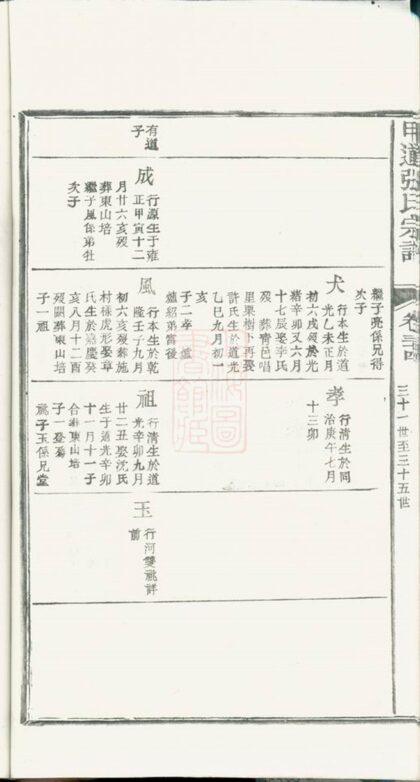 甲道張氏宗譜
三十一世至三十五世
有道
子
成
行源生于雍
正甲寅十二
月廿六亥歿
葬東山培
繼子風係弟牡
次子
繼子亮係兄得
次子
犬
行本生於道
光乙未正月
初六戌歿於光
緒辛卯又六月
十七辰娶李氏
歿葬青邑唱
里果樹卜再娶
許氏生於道光
乙巳九月初一
亥
子二孝爐
爐紹弟富後
風
行本生於乾
隆壬子九月
初六亥歿葬施
村樣虎形娶章
氏生於嘉慶癸
亥八月十二酉
歿關葬東山培
子一祖
孝
行清生於同
治庚午七月
十三卯
祖
行清生於道
光辛卯九月
廿二丑娶沈氏
生于道光辛卯
十一月十一子
合葬東山培
子一臺殤
祧子玉係兄堂
玉
行河雙祧詳
前